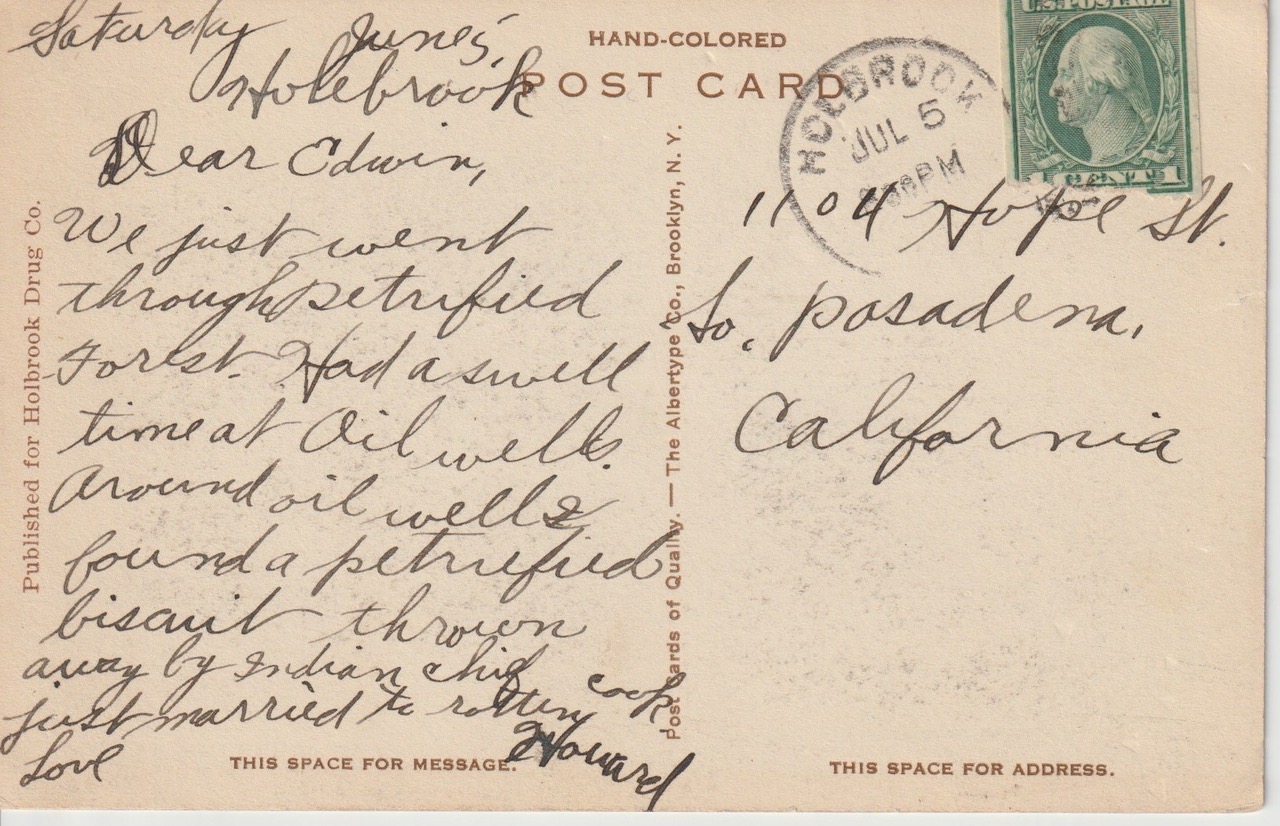 Saturday June 5,
Holebrook
Dear Edwin,
We just went
through petrified
Forest. Had a swell
time at Oil wells.
Around oil wells
found a petriefied
biscuit thrown
away by Indian chif
just married to rotten cook
Love Howard
HAND-COLORED
POST CARD
HOLBROOK
JUL 5
PM
U.S. POSTAGE
1 CENT 1
1104 Hope St.
So. Pasadena,
California
Published for Holbrook Drug Co.
Post Cards of Quality. — The Albertype Co., Brooklyn, N. Y.
THIS SPACE FOR MESSAGE.
THIS SPACE FOR ADDRESS.